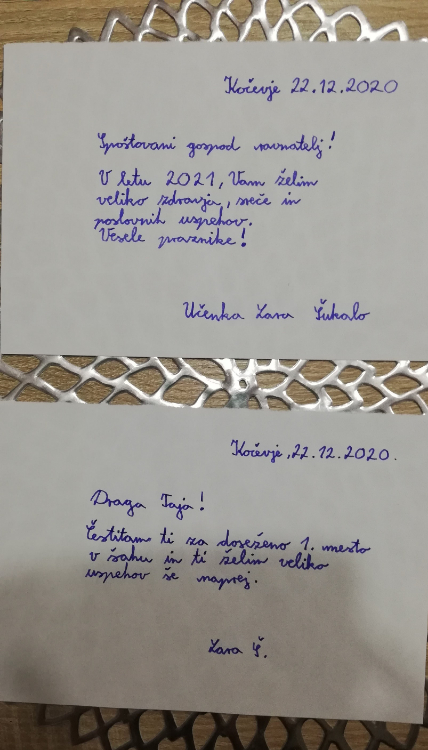 Kočevje 22.12.2020
Spoštovani gospod ravnatelj!
V letu 2021, Vam želim
veliko zdravja, sreče in
poslovnih uspehov.
Vesele praznike!
Učenka Zara Šukalo
Kočevje, 22.12.2020.
Draga Taja!
Čestitam ti za doseženo 1. mesto
v šahu in ti želim veliko
uspehov še naprej.
Zara Š.